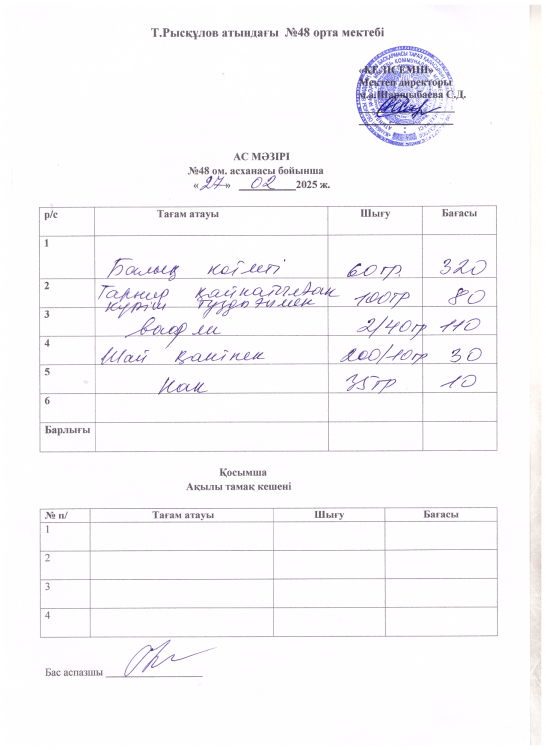 Т.Рысқұлов атындағы №48 орта мектебі
«КЕЛІСЕМІН»
Мектеп директоры
м.а.Шаршыбаева С.Д.
АС МӘЗІРІ
№48 ом. асханасы бойынша
« 27 » 02 2025 ж.
р/с Тағам атауы Шығу Бағасы
1 Балық котлеті 60 гр. 320
2 Гарнир қайнатылған күріш тұздығымен 100гр 80
3 вафли 2/40гр 110
4 Шай қантпен 200/10гр 30
5 Нан 35гр 10
6
Барлығы
Қосымша
Ақылы тамақ кешені
№ п/ Тағам атауы Шығу Бағасы
1
2
3
4
Бас аспазшы